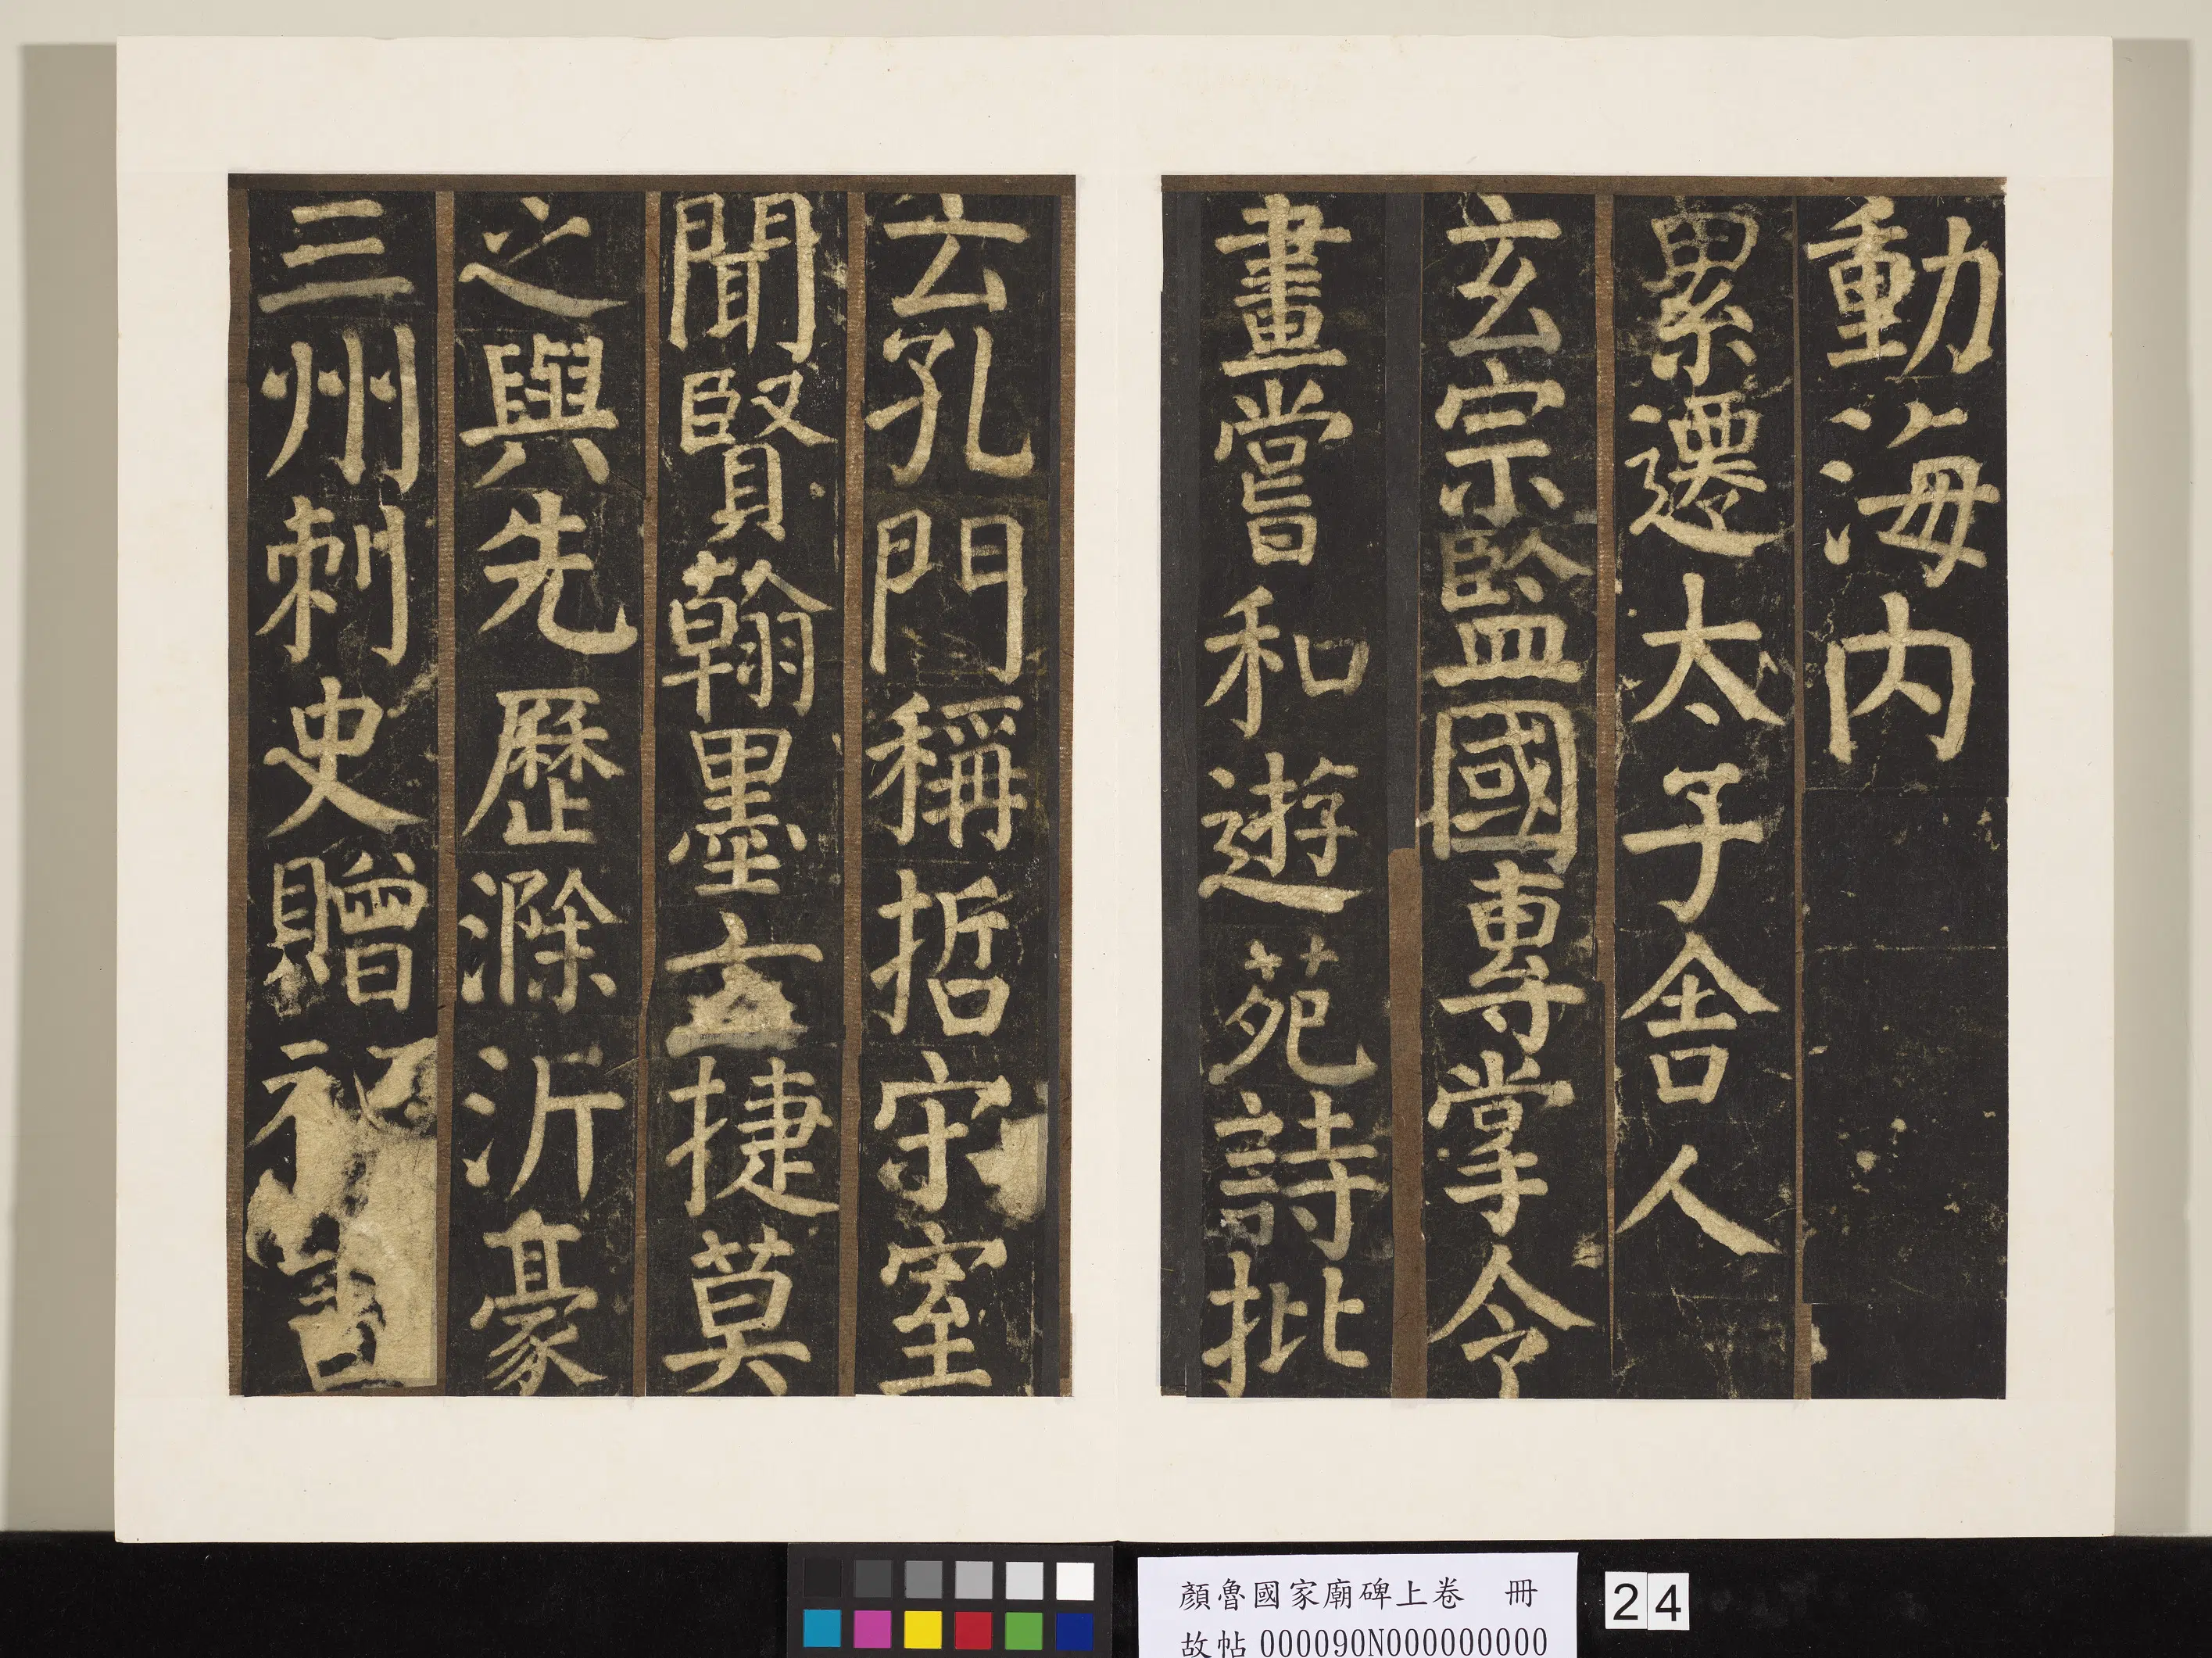 動海内
累遷太子舍人
玄宗監國專掌令
畫嘗和遊苑詩批
云孔門稱哲宋室
聞賢翰墨云捷莫
之與先歷滁沂豪
三州刺史贈祕書
顏魯國家廟碑上卷 冊
故帖 000090N000000000
24